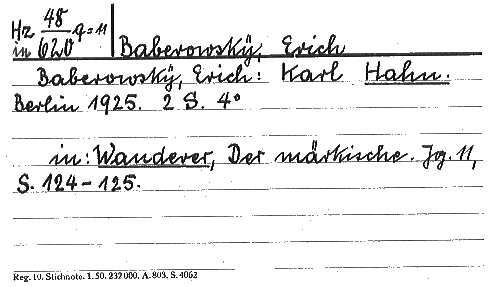 Hz 48
in 620 q=11 Baberowskÿ, Erich
Baberowskÿ, Erich: Karl Hahn.
Berlin 1925. 2 S. 4°
in: Wanderer, Der märkische. Jg. 11,
S. 124-125.
Reg. 10. Stichnote. 1. 50. 232 000. A. 803. S. 4062